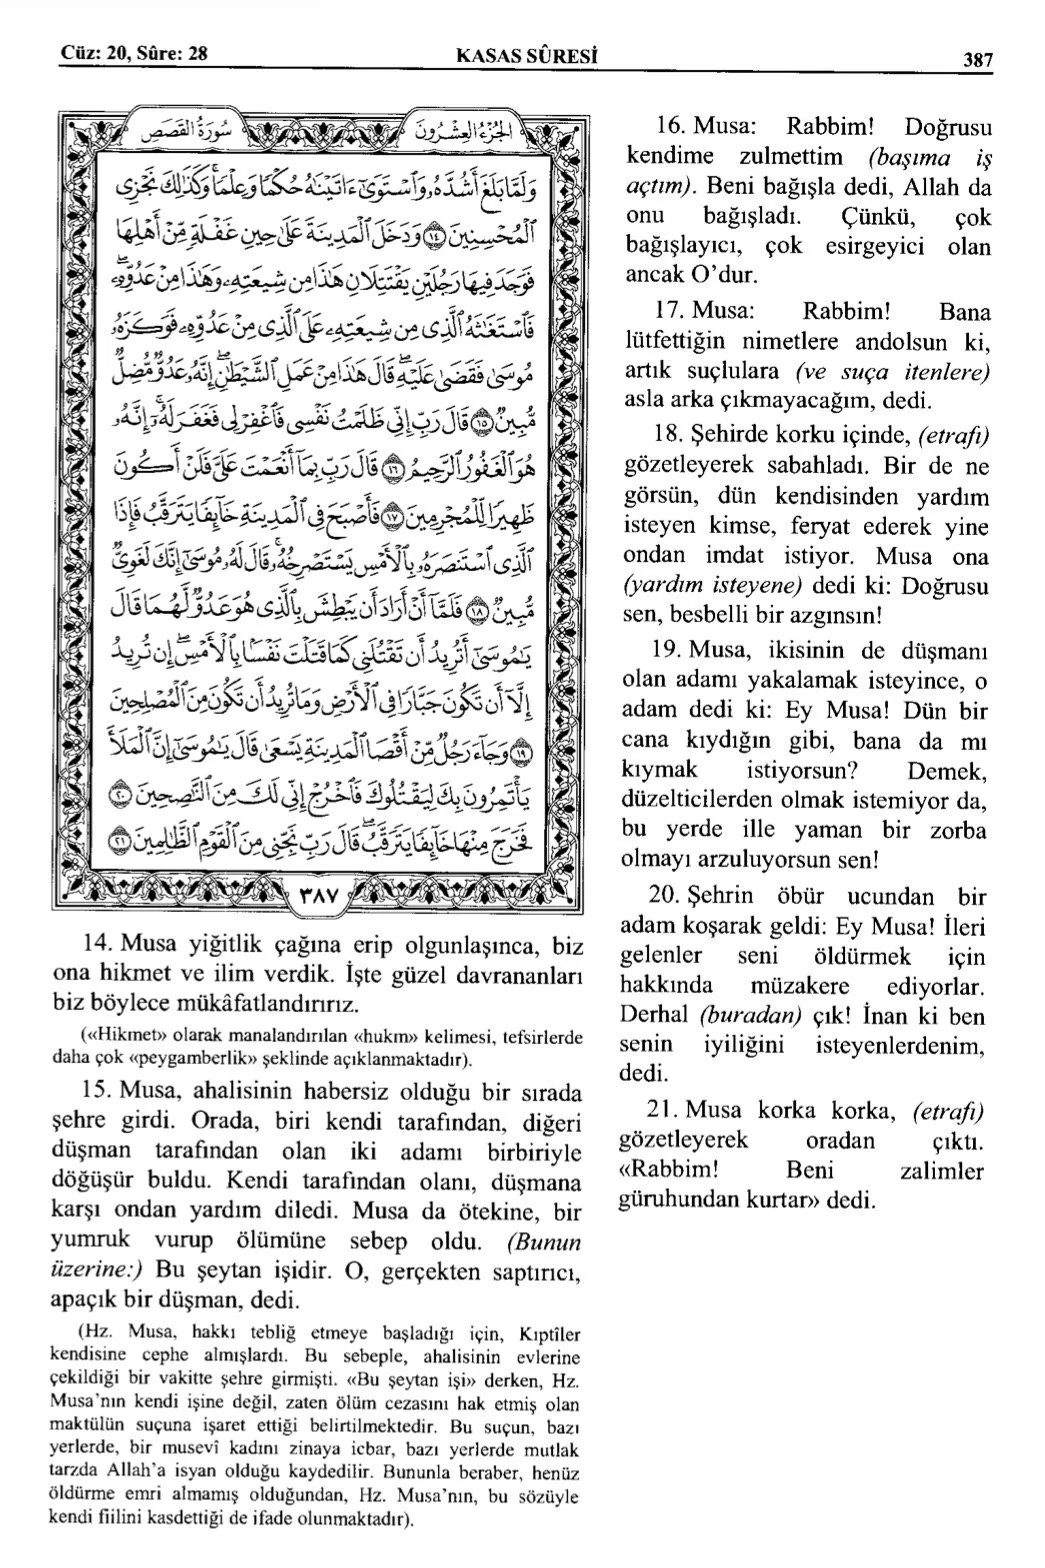 Cüz: 20, Sûre: 28
KASAS SÛRESİ
387
سُورَةُ القَصَصِ
الجُزْءُ العِشْرُونَ
وَلَمَّا بَلَغَ أَشُدَّهُۥ وَٱسْتَوَىٰٓ ءَاتَيْنَٰهُ حُكْمًا وَعِلْمًا ۚ وَكَذَٰلِكَ نَجْزِى
ٱلْمُحْسِنِينَ ﴿١٤﴾ وَدَخَلَ ٱلْمَدِينَةَ عَلَىٰ حِينِ غَفْلَةٍ مِّنْ أَهْلِهَا
فَوَجَدَ فِيهَا رَجُلَيْنِ يَقْتَتِلَانِ هَٰذَا مِن شِيعَتِهِۦ وَهَٰذَا مِنْ عَدُوِّهِۦ ۖ
فَٱسْتَغَٰثَهُ ٱلَّذِى مِن شِيعَتِهِۦ عَلَى ٱلَّذِى مِنْ عَدُوِّهِۦ فَوَكَزَهُۥ
مُوسَىٰ فَقَضَىٰ عَلَيْهِ ۖ قَالَ هَٰذَا مِنْ عَمَلِ ٱلشَّيْطَٰنِ ۖ إِنَّهُۥ عَدُوٌّ مُّضِلٌّ
مُّبِينٌ ﴿١٥﴾ قَالَ رَبِّ إِنِّى ظَلَمْتُ نَفْسِى فَٱغْفِرْ لِى فَغَفَرَ لَهُۥٓ ۚ إِنَّهُۥ
هُوَ ٱلْغَفُورُ ٱلرَّحِيمُ ﴿١٦﴾ قَالَ رَبِّ بِمَآ أَنْعَمْتَ عَلَىَّ فَلَنْ أَكُونَ
ظَهِيرًا لِّلْمُجْرِمِينَ ﴿١٧﴾ فَأَصْبَحَ فِى ٱلْمَدِينَةِ خَآئِفًا يَتَرَقَّبُ فَإِذَا
ٱلَّذِى ٱسْتَنصَرَهُۥ بِٱلْأَمْسِ يَسْتَصْرِخُهُۥ ۚ قَالَ لَهُۥ مُوسَىٰٓ إِنَّكَ لَغَوِىٌّ
مُّبِينٌ ﴿١٨﴾ فَلَمَّآ أَنْ أَرَادَ أَن يَبْطِشَ بِٱلَّذِى هُوَ عَدُوٌّ لَّهُمَا قَالَ
يَٰمُوسَىٰٓ أَتُرِيدُ أَن تَقْتُلَنِى كَمَا قَتَلْتَ نَفْسًۢا بِٱلْأَمْسِ ۖ إِن تُرِيدُ
إِلَّآ أَن تَكُونَ جَبَّارًا فِى ٱلْأَرْضِ وَمَا تُرِيدُ أَن تَكُونَ مِنَ ٱلْمُصْلِحِينَ
﴿١٩﴾ وَجَآءَ رَجُلٌ مِّنْ أَقْصَا ٱلْمَدِينَةِ يَسْعَىٰ قَالَ يَٰمُوسَىٰٓ إِنَّ ٱلْمَلَأَ
يَأْتَمِرُونَ بِكَ لِيَقْتُلُوكَ فَٱخْرُجْ إِنِّى لَكَ مِنَ ٱلنَّٰصِحِينَ ﴿٢٠﴾
فَخَرَجَ مِنْهَا خَآئِفًا يَتَرَقَّبُ ۖ قَالَ رَبِّ نَجِّنِى مِنَ ٱلْقَوْمِ ٱلظَّٰلِمِينَ ﴿٢١﴾
٣٨٧
14. Musa yiğitlik çağına erip olgunlaşınca, biz
ona hikmet ve ilim verdik. İşte güzel davrananları
biz böylece mükâfatlandırırız.
(«Hikmet» olarak manalandırılan «hukm» kelimesi, tefsirlerde
daha çok «peygamberlik» şeklinde açıklanmaktadır).
15. Musa, ahalisinin habersiz olduğu bir sırada
şehre girdi. Orada, biri kendi tarafından, diğeri
düşman tarafından olan iki adamı birbiriyle
döğüşür buldu. Kendi tarafından olanı, düşmana
karşı ondan yardım diledi. Musa da ötekine, bir
yumruk vurup ölümüne sebep oldu. (Bunun
üzerine:) Bu şeytan işidir. O, gerçekten saptırıcı,
apaçık bir düşman, dedi.
(Hz. Musa, hakkı tebliğ etmeye başladığı için, Kıptîler
kendisine cephe almışlardı. Bu sebeple, ahalisinin evlerine
çekildiği bir vakitte şehre girmişti. «Bu şeytan işi» derken, Hz.
Musa'nın kendi işine değil, zaten ölüm cezasını hak etmiş olan
maktülün suçuna işaret ettiği belirtilmektedir. Bu suçun, bazı
yerlerde, bir musevî kadını zinaya icbar, bazı yerlerde mutlak
tarzda Allah'a isyan olduğu kaydedilir. Bununla beraber, henüz
öldürme emri almamış olduğundan, Hz. Musa'nın, bu sözüyle
kendi fiilini kasdettiği de ifade olunmaktadır).
16. Musa: Rabbim! Doğrusu
kendime zulmettim (başıma iş
açtım). Beni bağışla dedi, Allah da
onu bağışladı. Çünkü, çok
bağışlayıcı, çok esirgeyici olan
ancak O'dur.
17. Musa: Rabbim! Bana
lütfettiğin nimetlere andolsun ki,
artık suçlulara (ve suça itenlere)
asla arka çıkmayacağım, dedi.
18. Şehirde korku içinde, (etrafı)
gözetleyerek sabahladı. Bir de ne
görsün, dün kendisinden yardım
isteyen kimse, feryat ederek yine
ondan imdat istiyor. Musa ona
(yardım isteyene) dedi ki: Doğrusu
sen, besbelli bir azgınsın!
19. Musa, ikisinin de düşmanı
olan adamı yakalamak isteyince, o
adam dedi ki: Ey Musa! Dün bir
cana kıydığın gibi, bana da mı
kıymak istiyorsun? Demek,
düzelticilerden olmak istemiyor da,
bu yerde ille yaman bir zorba
olmayı arzuluyorsun sen!
20. Şehrin öbür ucundan bir
adam koşarak geldi: Ey Musa! İleri
gelenler seni öldürmek için
hakkında müzakere ediyorlar.
Derhal (buradan) çık! İnan ki ben
senin iyiliğini isteyenlerdenim,
dedi.
21. Musa korka korka, (etrafı)
gözetleyerek oradan çıktı.
«Rabbim! Beni zalimler
güruhundan kurtar» dedi.